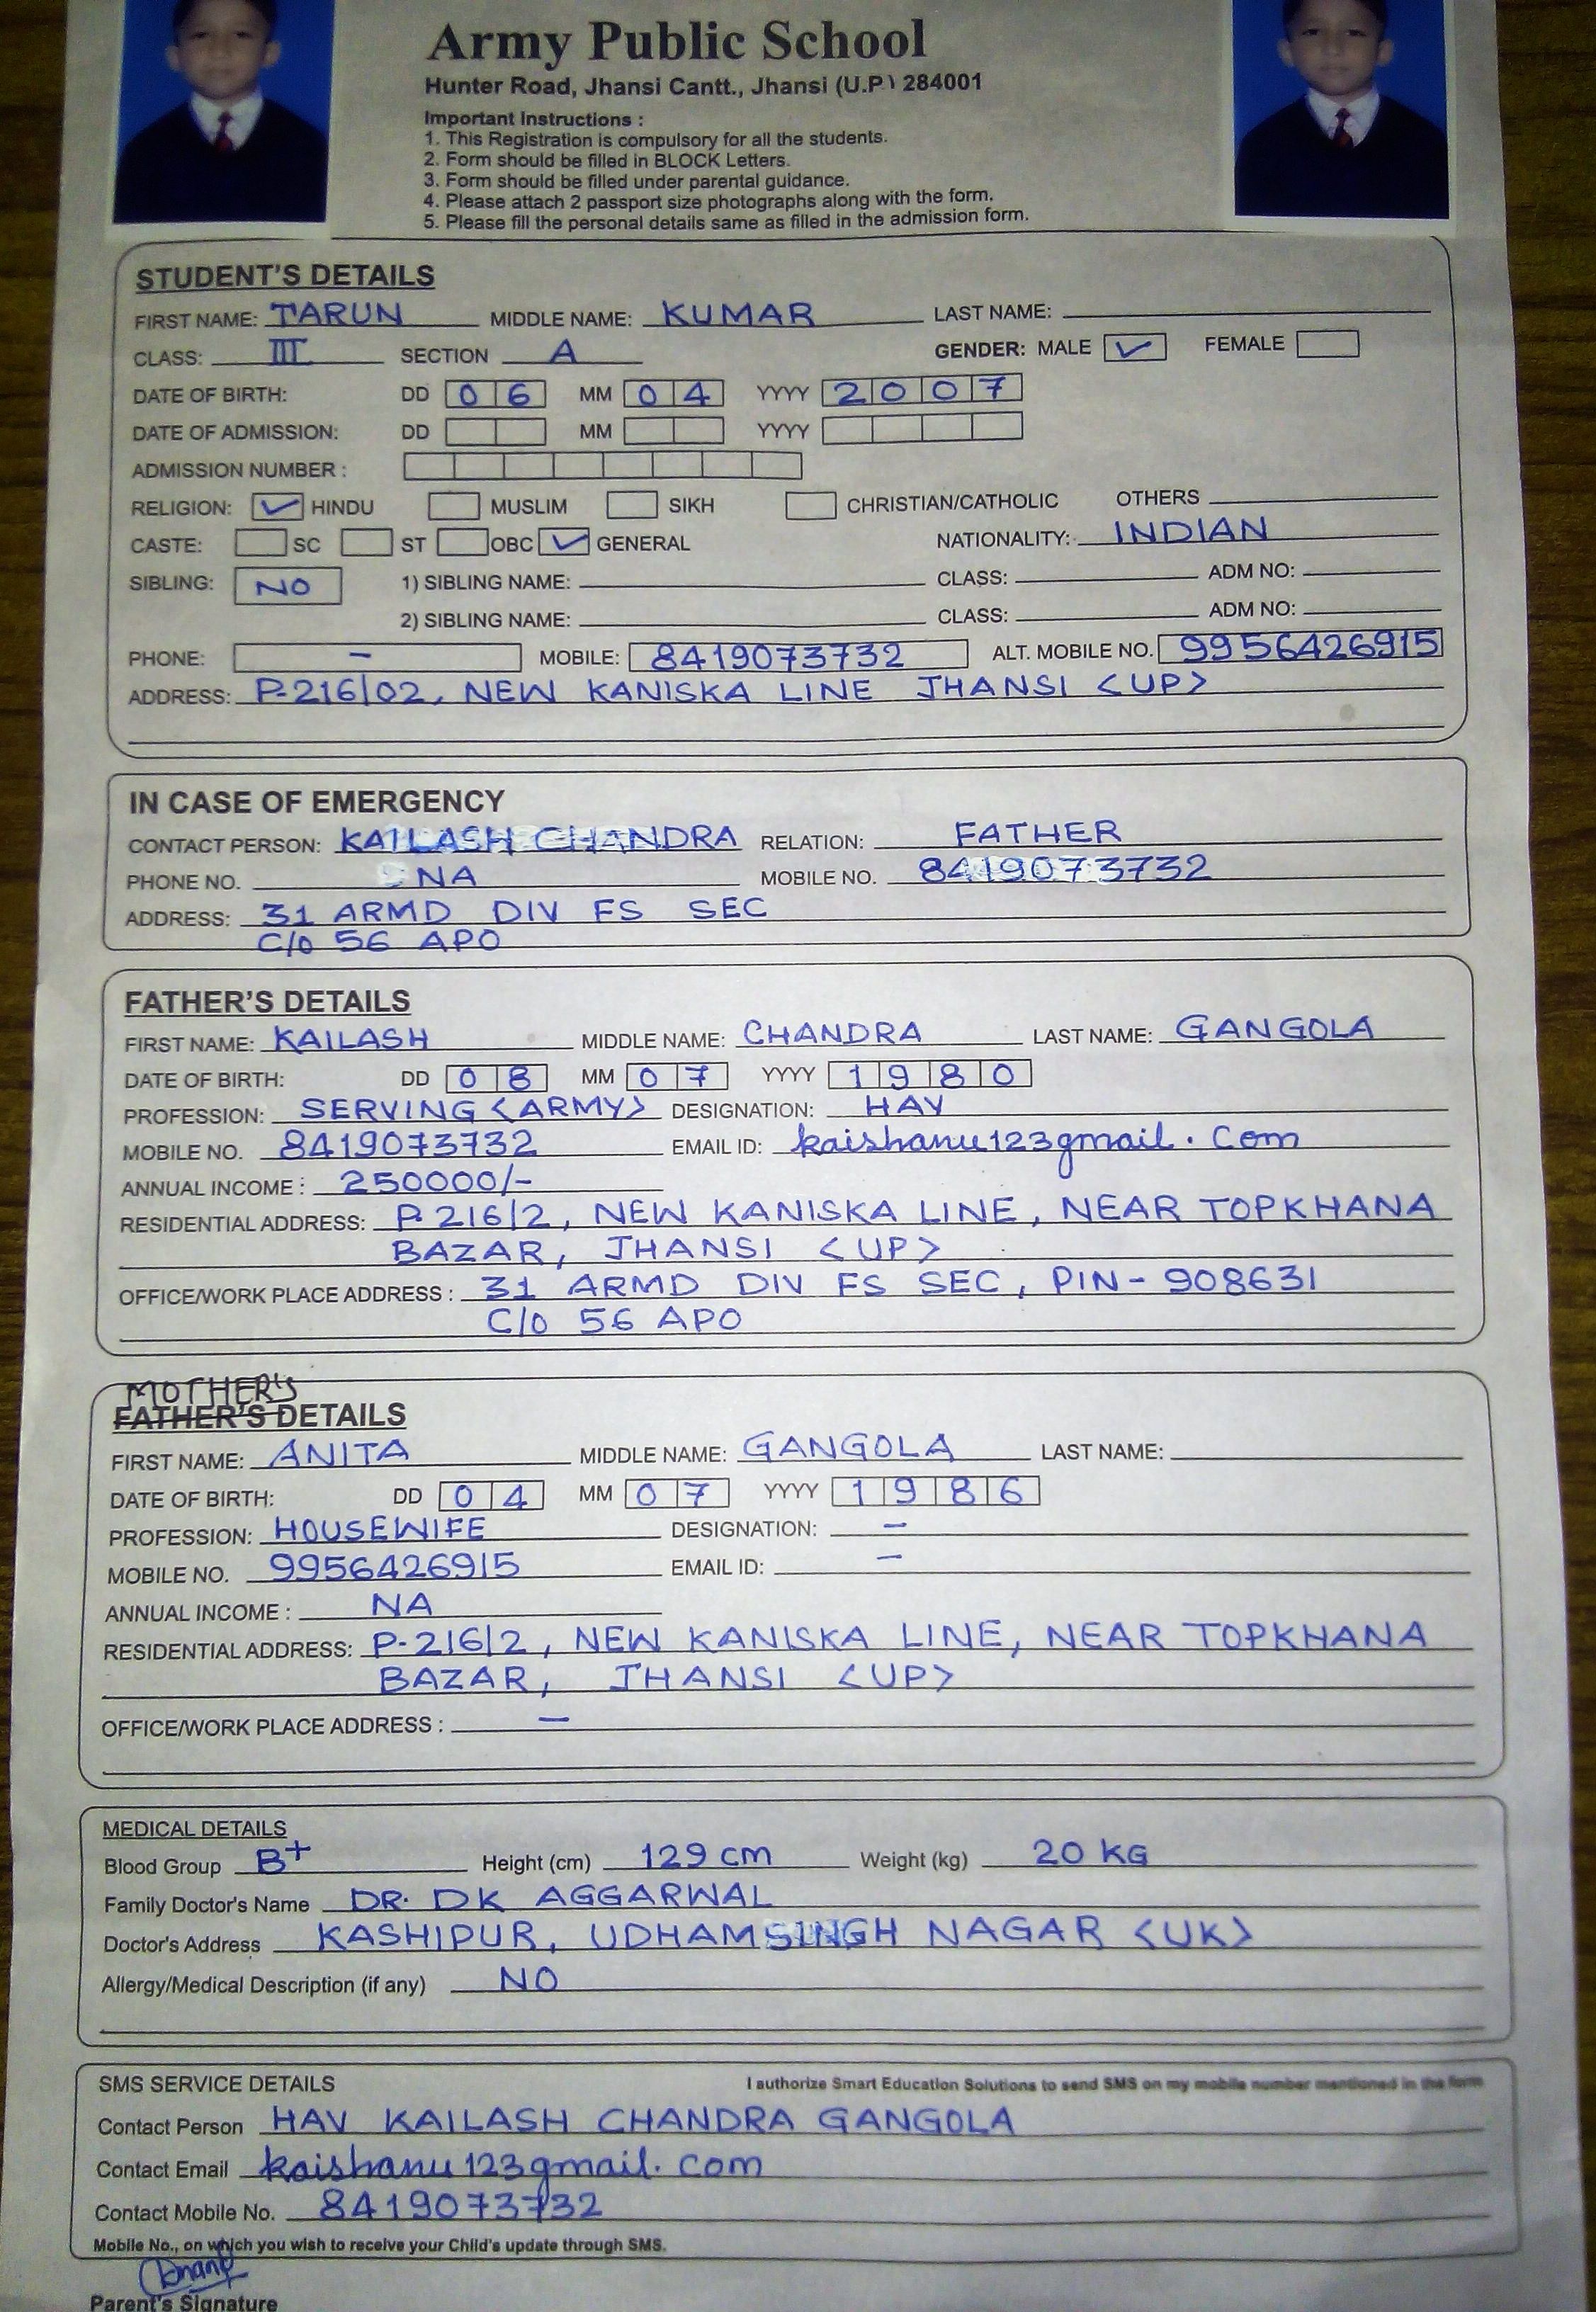 Army Public School
Hunter Road, Jhansi Cantt., Jhansi (U.P) 284001
Important Instructions :
1. This Registration is compulsory for all the students.
2. Form should be filled in BLOCK Letters.
3. Form should be filled under parental guidance.
4. Please attach 2 passport size photographs along with the form.
5. Please fill the personal details same as filled in the admission form.
STUDENT'S DETAILS
FIRST NAME: TARUN MIDDLE NAME: KUMAR LAST NAME:
CLASS: III SECTION A GENDER: MALE ✓ FEMALE
DATE OF BIRTH: DD 06 MM 04 YYYY 2007
DATE OF ADMISSION: DD MM YYYY
ADMISSION NUMBER :
RELIGION: ✓ HINDU MUSLIM SIKH CHRISTIAN/CATHOLIC OTHERS
CASTE: SC ST OBC ✓ GENERAL NATIONALITY: INDIAN
SIBLING: NO 1) SIBLING NAME: CLASS: ADM NO:
2) SIBLING NAME: CLASS: ADM NO:
PHONE: - MOBILE: 8419073732 ALT. MOBILE NO. 9956426915
ADDRESS: P-216/02, NEW KANISKA LINE JHANSI <UP>
IN CASE OF EMERGENCY
CONTACT PERSON: KAILASH CHANDRA RELATION: FATHER
PHONE NO. NA MOBILE NO. 8419073732
ADDRESS: 31 ARMD DIV FS SEC
C/o 56 APO
FATHER'S DETAILS
FIRST NAME: KAILASH MIDDLE NAME: CHANDRA LAST NAME: GANGOLA
DATE OF BIRTH: DD 08 MM 07 YYYY 1980
PROFESSION: SERVING <ARMY> DESIGNATION: HAV
MOBILE NO. 8419073732 EMAIL ID: kaishanu123gmail.com
ANNUAL INCOME : 250000/-
RESIDENTIAL ADDRESS: P-216/2, NEW KANISKA LINE, NEAR TOPKHANA
BAZAR, JHANSI <UP>
OFFICE/WORK PLACE ADDRESS : 31 ARMD DIV FS SEC, PIN-908631
C/o 56 APO
MOTHER'S
FATHER'S DETAILS
FIRST NAME: ANITA MIDDLE NAME: GANGOLA LAST NAME:
DATE OF BIRTH: DD 04 MM 07 YYYY 1986
PROFESSION: HOUSEWIFE DESIGNATION: -
MOBILE NO. 9956426915 EMAIL ID: -
ANNUAL INCOME : NA
RESIDENTIAL ADDRESS: P-216/2, NEW KANISKA LINE, NEAR TOPKHANA
BAZAR, JHANSI <UP>
OFFICE/WORK PLACE ADDRESS : -
MEDICAL DETAILS
Blood Group B+ Height (cm) 129 cm Weight (kg) 20 KG
Family Doctor's Name DR. DK AGGARWAL
Doctor's Address KASHIPUR, UDHAMSINGH NAGAR <UK>
Allergy/Medical Description (if any) NO
SMS SERVICE DETAILS I authorize Smart Education Solutions to send SMS on my mobile number mentioned in the form
Contact Person HAV KAILASH CHANDRA GANGOLA
Contact Email kaishanu123gmail.com
Contact Mobile No. 8419073732
Mobile No., on which you wish to receive your Child's update through SMS.
Parent's Signature